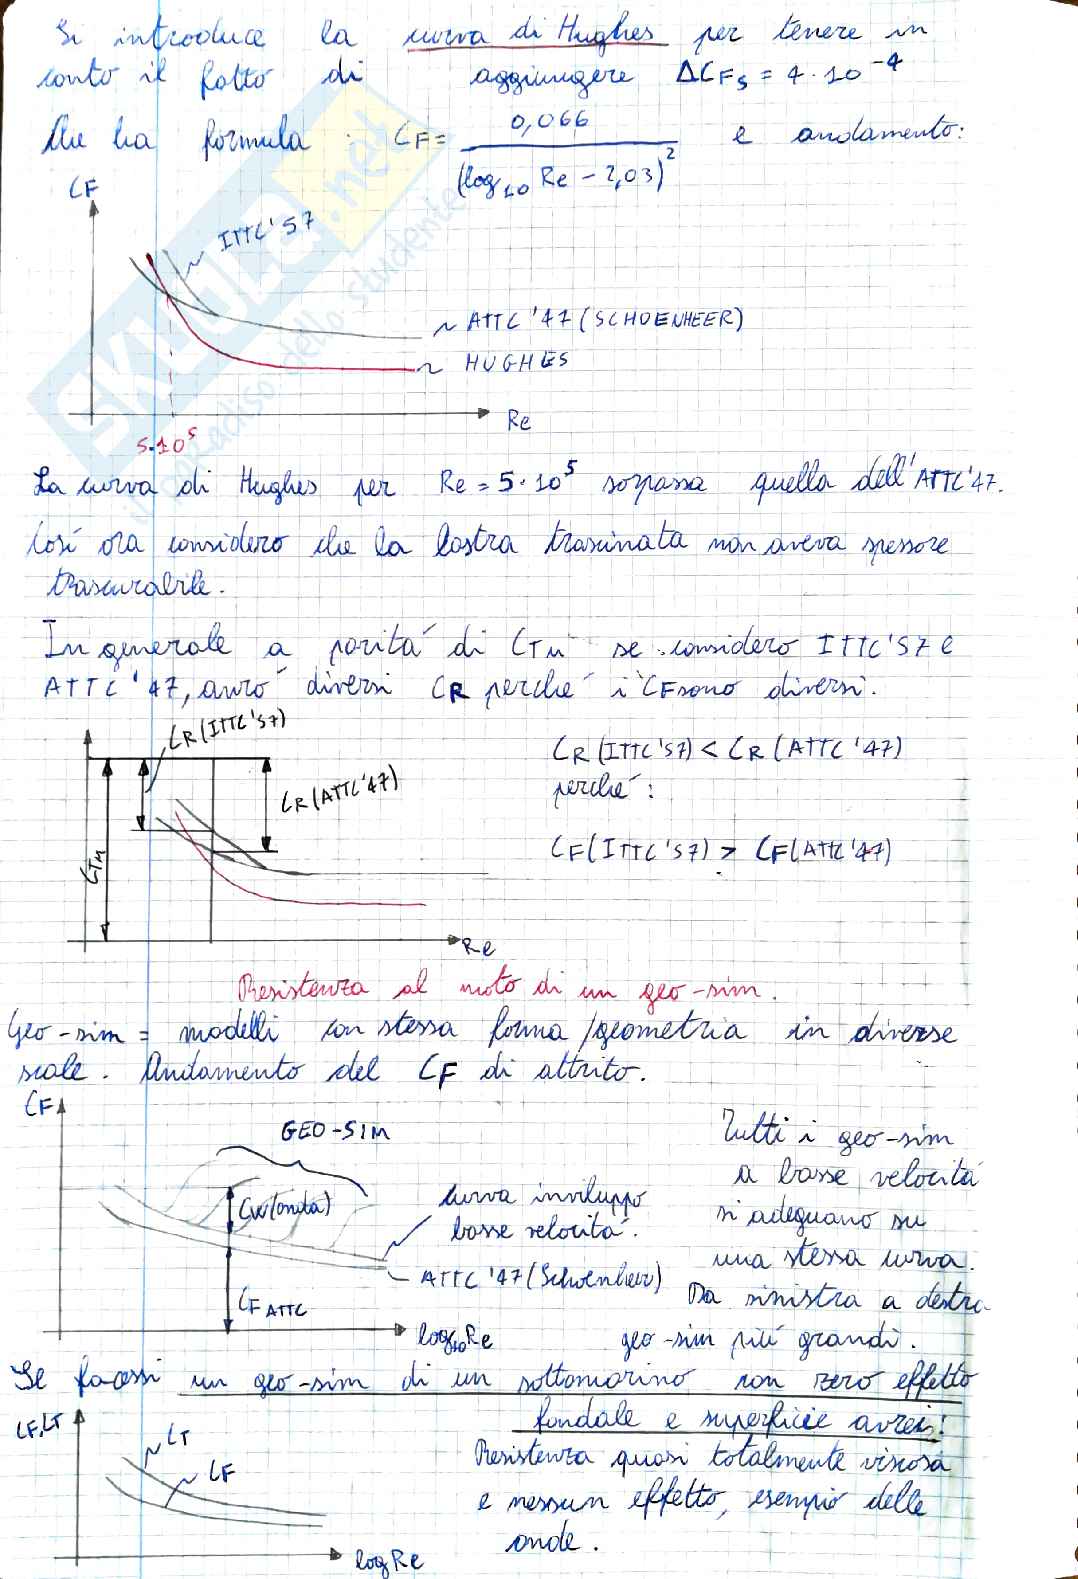 Si introduce la curva di Hughes per tenere in
conto il fatto di aggiungere ΔCFs = 4·10⁻⁴
che ha formula : CF = 0,066 / (log₁₀ Re - 2,03)² e andamento:
CF
ITTC'57
ATTC '47 (SCHOENHEER)
HUGHES
Re
5·10⁵
La curva di Hughes per Re = 5·10⁵ sorpassa quella dell'ATTC'47.
Così ora considero che la lastra trascinata non aveva spessore
trascurabile.
In generale a parità di CTM se considero ITTC'57 e
ATTC '47, avrò diversi CR perché i CF sono diversi.
CR (ITTC'57)
CR (ATTC'47)
CTM
Re
CR (ITTC'57) < CR (ATTC '47)
perché :
CF (ITTC'57) > CF (ATTC'47)
Resistenza al moto di un geo-sim.
Geo-sim = modelli con stessa forma/geometria in diverse
scale. Andamento del CF di attrito.
CF
GEO-SIM
CW (onda)
CF ATTC
curva inviluppo
basse velocità.
ATTC '47 (Schoenheer)
log₁₀ Re
Tutti i geo-sim
a basse velocità
si adeguano su
una stessa curva.
Da sinistra a destra
geo-sim più grandi.
Se facessi un geo-sim di un sottomarino con zero effetto
fondale e superficie avrei:
CF, CT
CT
CF
log Re
Resistenza quasi totalmente viscosa
e nessun effetto, esempio delle
onde.
SKUOLA.net
il paradiso dello studente